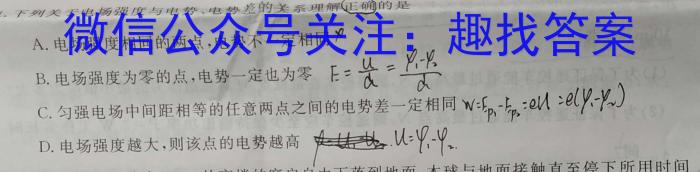 下列关于电场强度与电势、电势差的关系理解正确的是
微信公众号关注：趣找答案
A. 电场强度相同的两点，电势不一定相同
B. 电场强度为零的点，电势一定也为零 E = U/d = φ₁-φ₂/d
C. 匀强电场中间距相等的任意两点之间的电势差一定相同 W=Ep₁-Ep₂=eU=e(φ₁-φ₂)
D. 电场强度越大，则该点的电势越高 U=φ₁-φ₂
自由下落到地面，本球与地面接触直至停下所用时间